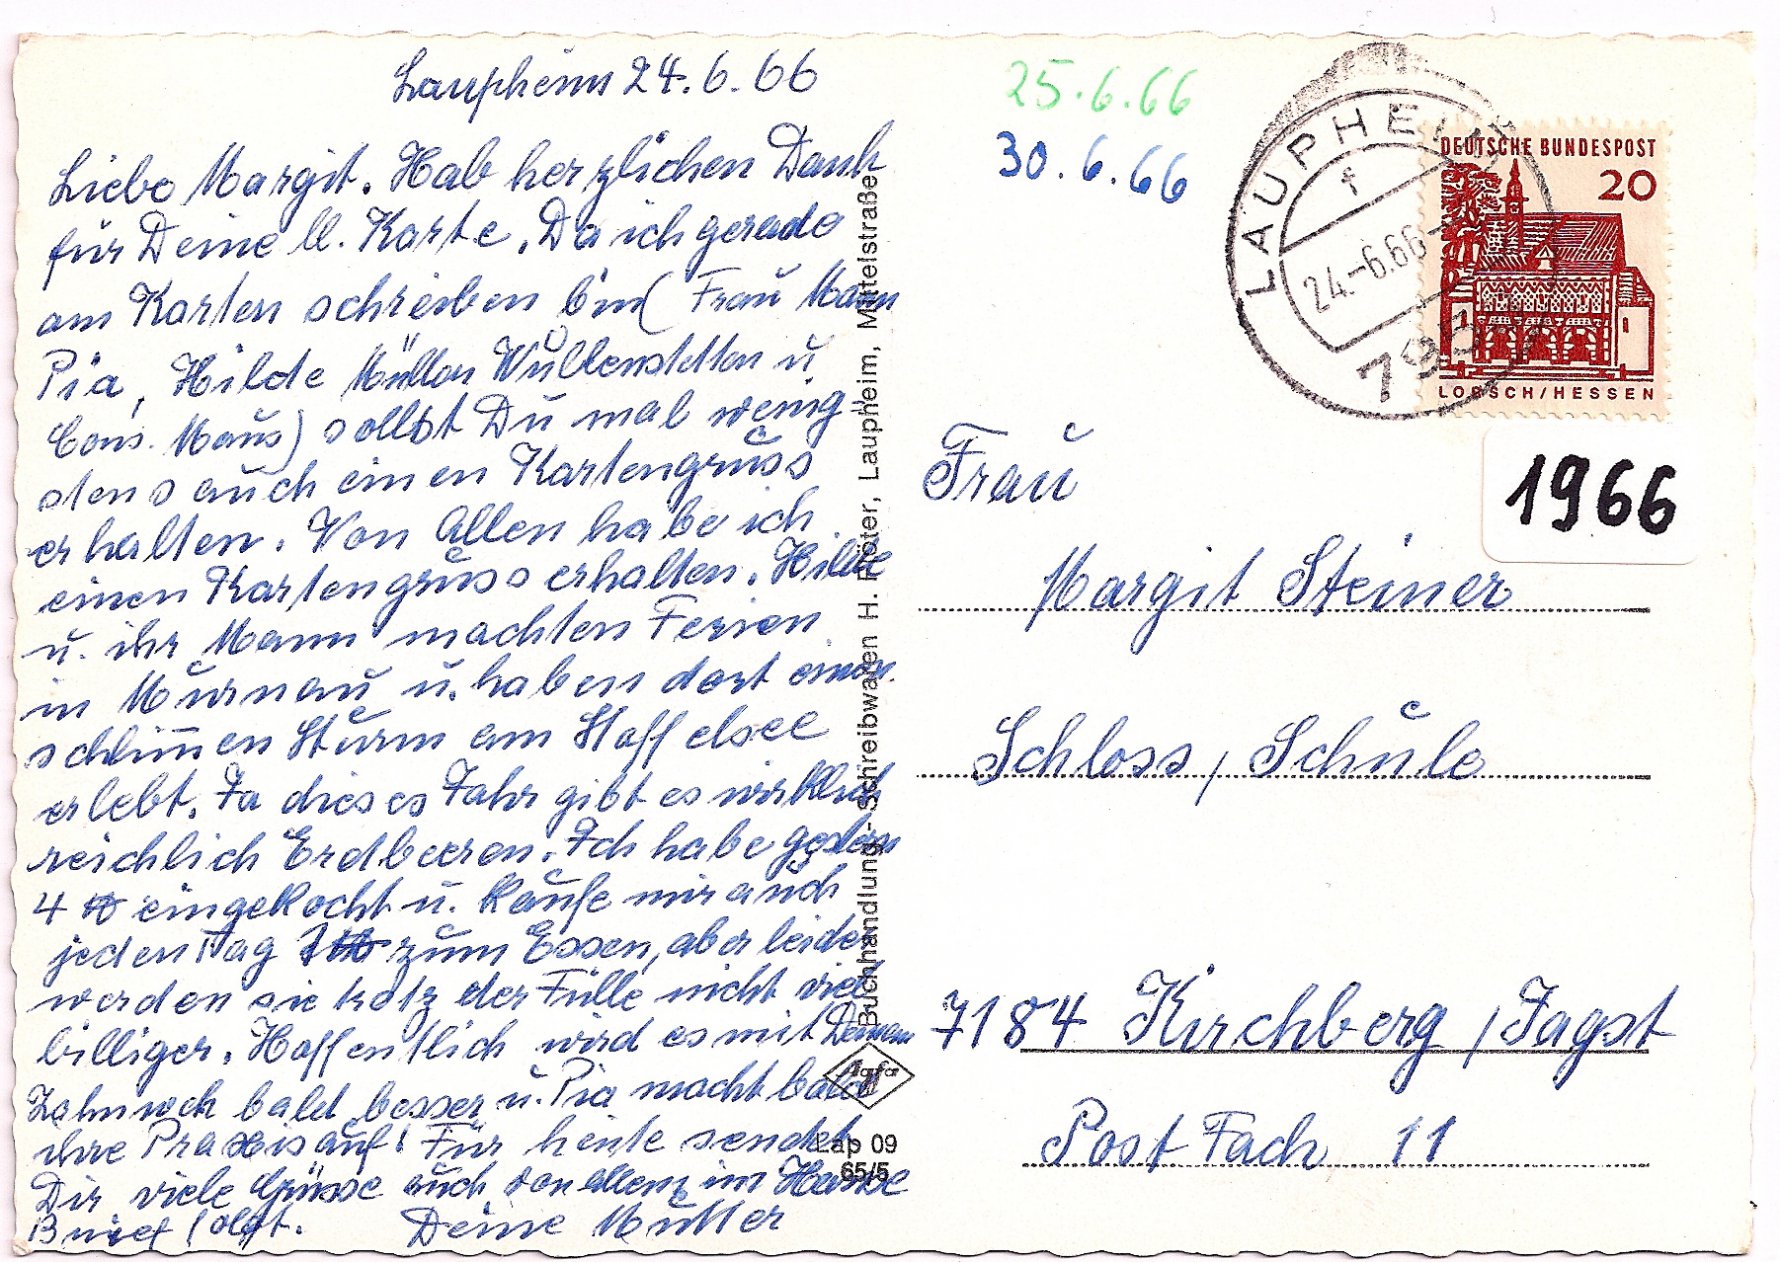 Laupheim 24.6.66
Liebe Margit. Hab herzlichen Dank
für Deine ll. Karte. Da ich gerade
am Karten schreiben bin ( Frau Mann
Pia, Hilde Müller Wullenstetten u
Cons. Maus) sollst Du mal wenig
stens auch einen Kartengruss
erhalten. Von Allen habe ich
einen Kartengruss erhalten. Hilde
u. ihr Mann machten Ferien
in Murnau u. haben dort einen
schlim̅en Sturm am Staffelsee
erlebt. Ja dieses Jahr gibt es wirklich
reichlich Erdbeeren. Ich habe gestern
4 ℔ eingekocht u. kaufe mir auch
jeden Tag 1 ℔ zum Essen, aber leider
werden sie trotz der Fülle nicht viel
billiger. Hoffentlich wird es mit Deinem
Zahnweh bald besser u. Pia macht bald
ihre Praxis auf! Für heute sendet
Dir viele Grüsse auch von allen im Hause
Brief folgt. Deine Mutter
25.6.66
30.6.66
LAUPHEIM
f
24.-6.66-
795
DEUTSCHE BUNDESPOST
20
LORSCH/HESSEN
1966
Frau
Margit Steiner
Schloss, Schule
7184 Kirchberg / Jagst
Post Fach 11
Buchhandlung-Schreibwaren H. Röter, Laupheim, Mittelstraße
Agfa
Lap 09
65/5